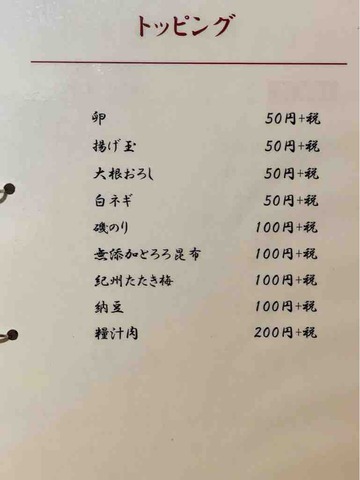 トッピング
卵 50円+税
揚げ玉 50円+税
大根おろし 50円+税
白ネギ 50円+税
磯のり 100円+税
無添加とろろ昆布 100円+税
紀州たたき梅 100円+税
納豆 100円+税
糧汁肉 200円+税